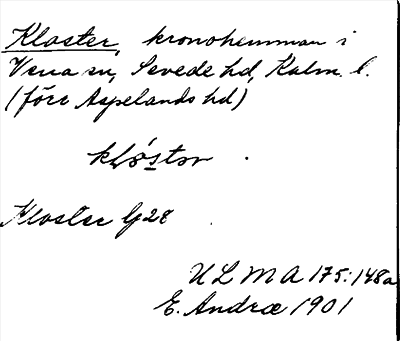 Kloster, kronohemman i
Vena sn, Sevede hd, Kalm. l.
(förr Aspelands hd)
klóstər
Kloster Gj28
ULMA 175:148a
E. Andræ 1901